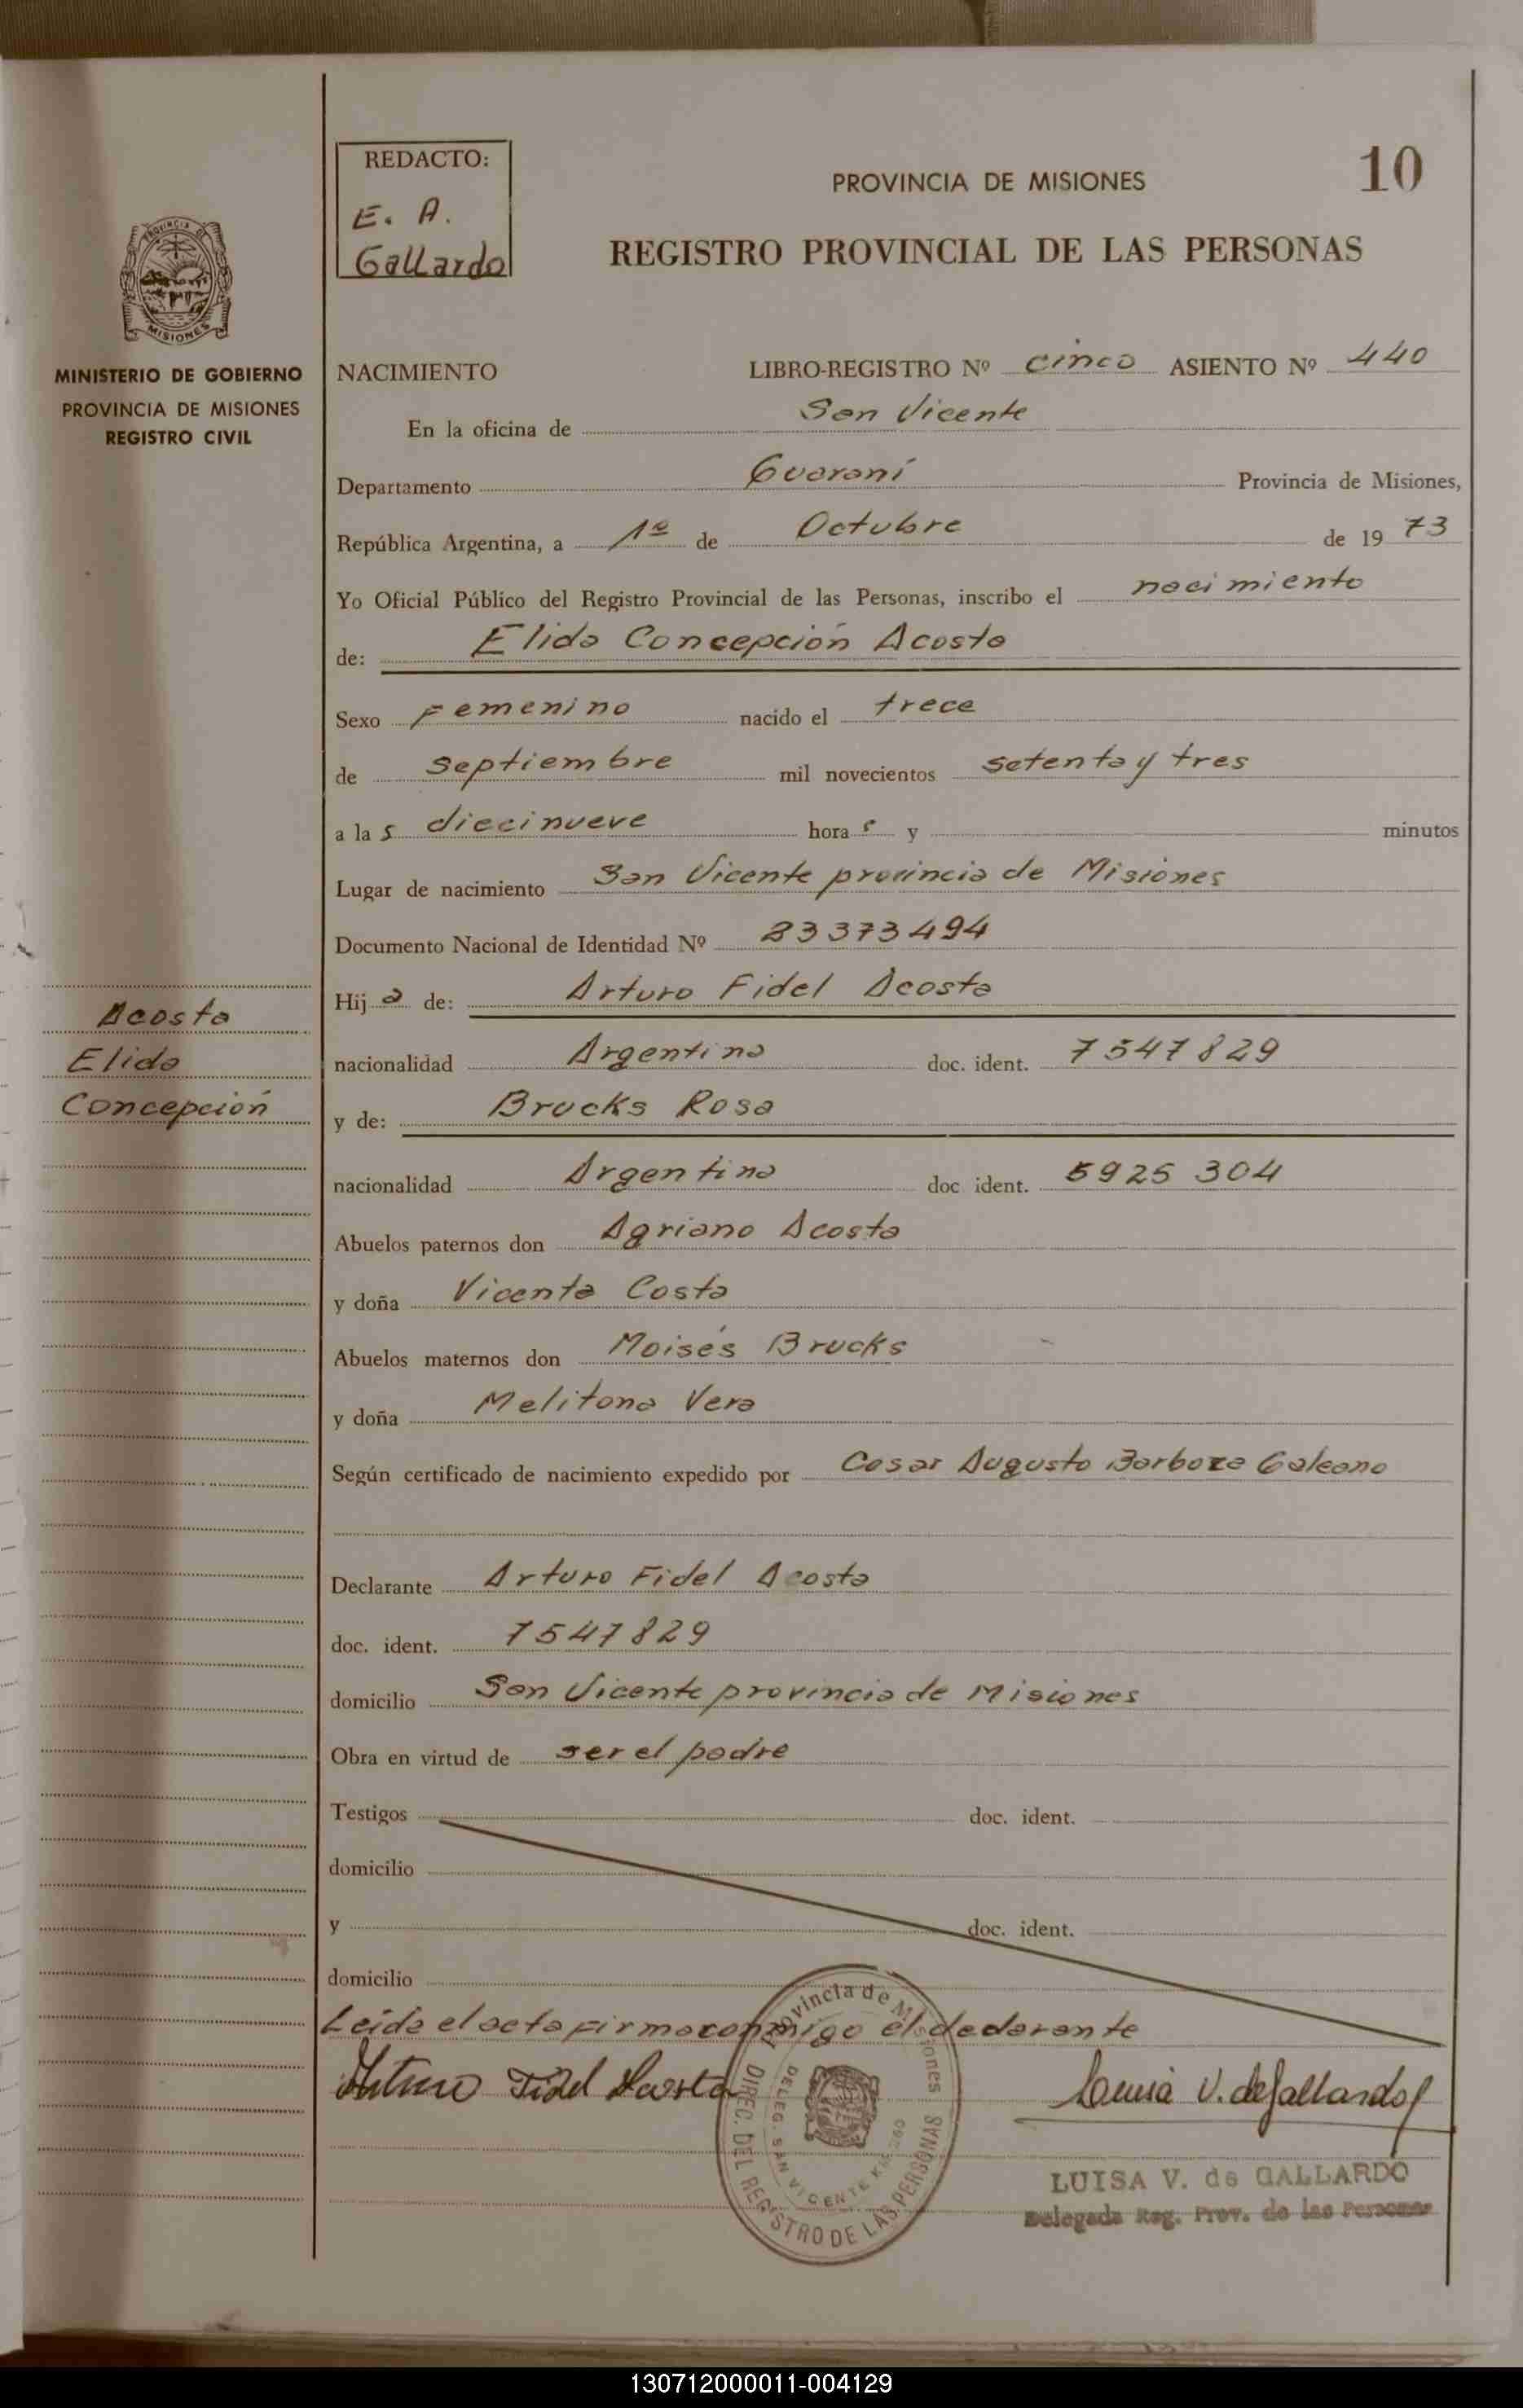 REDACTO:
E. A.
Gallardo
10
PROVINCIA DE MISIONES
REGISTRO PROVINCIAL DE LAS PERSONAS
PROVINCIA DE
MISIONES
MINISTERIO DE GOBIERNO
PROVINCIA DE MISIONES
REGISTRO CIVIL
NACIMIENTO LIBRO-REGISTRO Nº cinco ASIENTO Nº 440
En la oficina de San Vicente
Departamento Guaraní Provincia de Misiones,
República Argentina, a 1º de Octubre de 1973
Yo Oficial Público del Registro Provincial de las Personas, inscribo el nacimiento
de: Elida Concepción Acosta
Sexo Femenino nacido el trece
de septiembre mil novecientos setenta y tres
a las diecinueve horas y minutos
Lugar de nacimiento San Vicente provincia de Misiones
Documento Nacional de Identidad Nº 23373494
Hija de: Arturo Fidel Acosta
Acosta
Elida
Concepción
nacionalidad Argentina doc. ident. 7547829
y de: Brucks Rosa
nacionalidad Argentina doc. ident. 5925304
Abuelos paternos don Agriano Acosta
y doña Vicenta Costa
Abuelos maternos don Moisés Brucks
y doña Melitona Vera
Según certificado de nacimiento expedido por Cesar Augusto Barboza Galeano
Declarante Arturo Fidel Acosta
doc. ident. 7547829
domicilio San Vicente provincia de Misiones
Obra en virtud de ser el padre
Testigos doc. ident.
domicilio
y doc. ident.
domicilio
Leída el acta firma conmigo el declarante
Arturo Fidel Acosta
Luisa V. de Gallardo
Provincia de Misiones
DIREC. DEL REGISTRO DE LAS PERSONAS
DELEG. SAN VICENTE
LUISA V. de GALLARDO
Delegada Reg. Prov. de las Personas
130712000011-004129